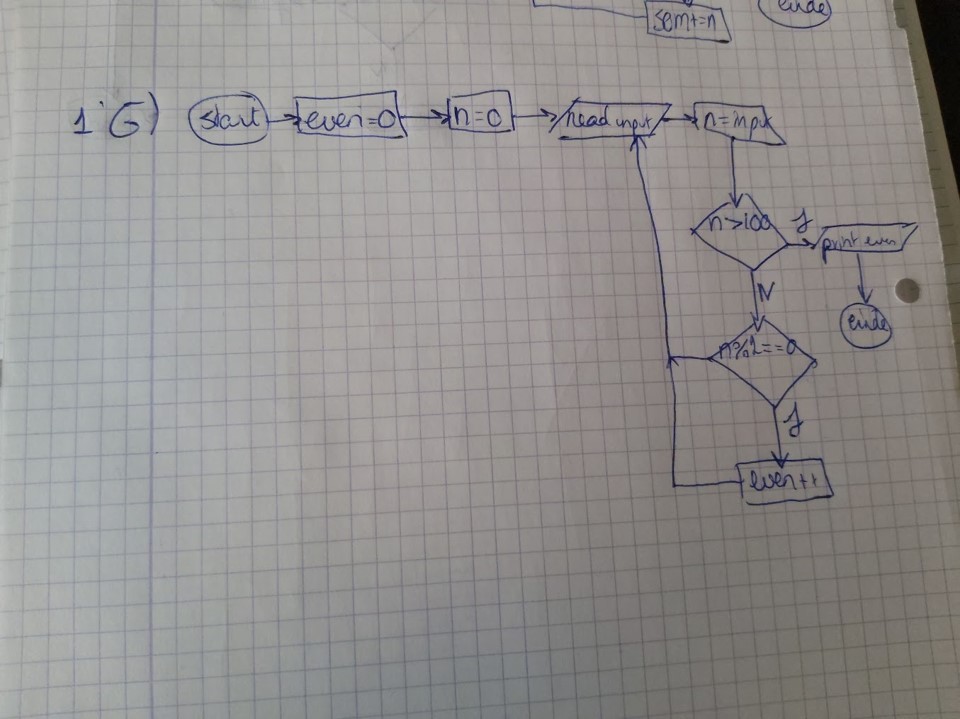 sem+=n
ende
1 G)
start
even=0
n=0
read input
n=input
n>100
J
print even
N
ende
n%2==0
J
even++